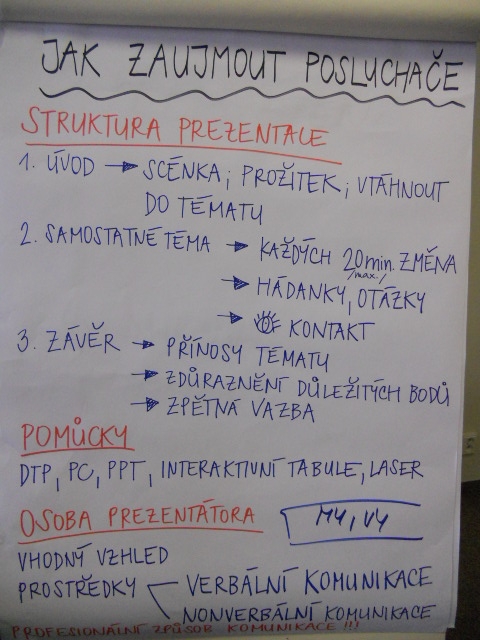 JAK ZAUJMOUT POSLUCHAČE
STRUKTURA PREZENTACE
1. ÚVOD → SCÉNKA; PROŽITEK; VTÁHNOUT
DO TÉMATU
2. SAMOSTATNÉ TÉMA → KAŽDÝCH 20min. ZMĚNA
/max./
→ HÁDANKY, OTÁZKY
→ KONTAKT
3. ZÁVĚR → PŘÍNOSY TÉMATU
→ ZDŮRAZNĚNÍ DŮLEŽITÝCH BODŮ
→ ZPĚTNÁ VAZBA
POMŮCKY
DTP, PC, PPT, INTERAKTIVNÍ TABULE, LASER
OSOBA PREZENTÁTORA MY, VY
VHODNÝ VZHLED
PROSTŘEDKY VERBÁLNÍ KOMUNIKACE
NONVERBÁLNÍ KOMUNIKACE
PROFESIONÁLNÍ ZPŮSOB KOMUNIKACE !!!